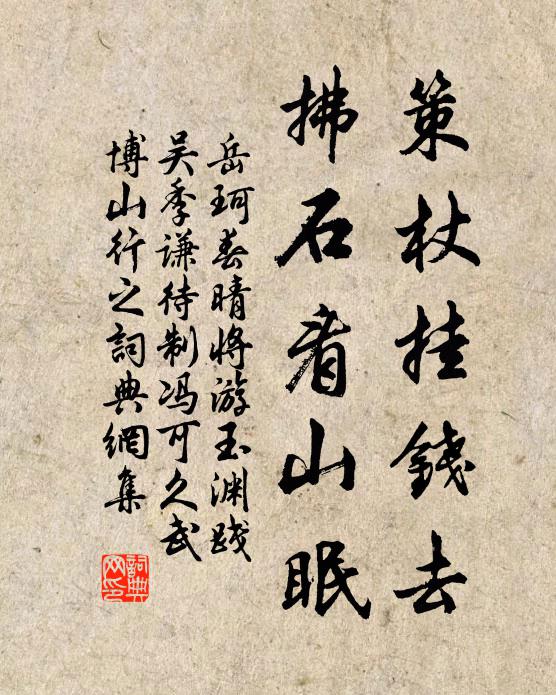 策杖挂錢去
拂石看山眠
岳珂春晴將游玉渊踐
吴季謙待制冯可久武
博山行之詞典網集
詞典网印